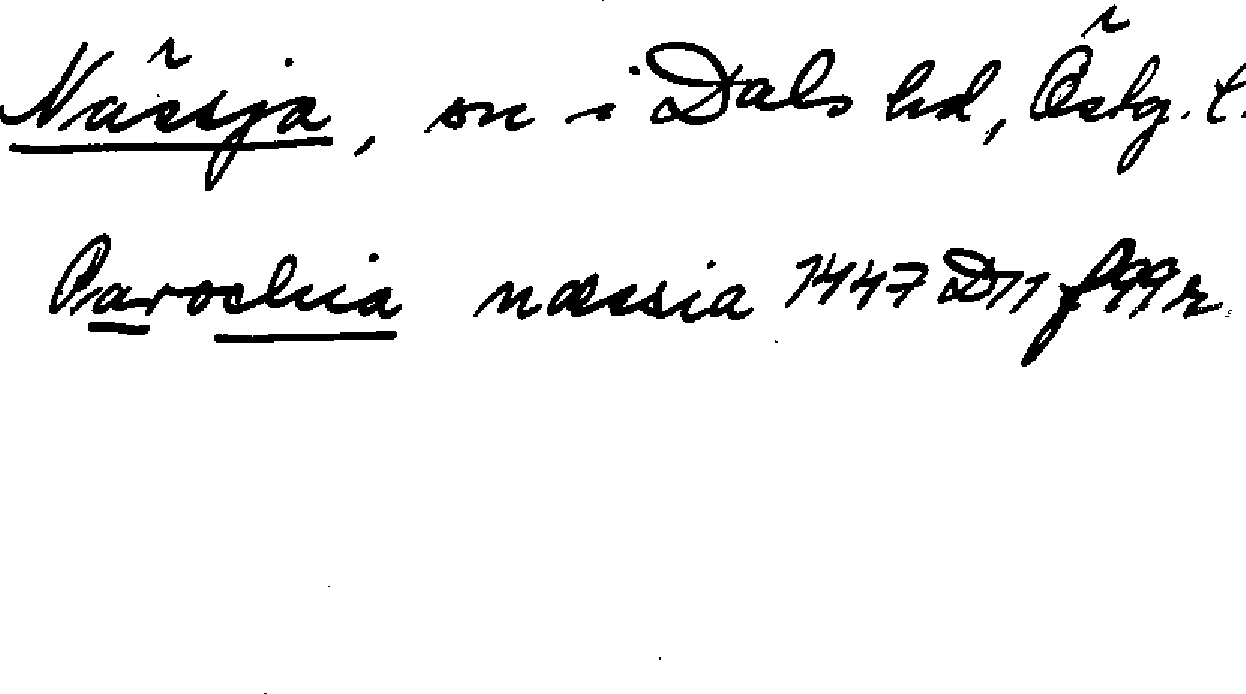 Nässja, sn i Dals hd, Östg. t.
Parochia næssia 1447 D11 f99r